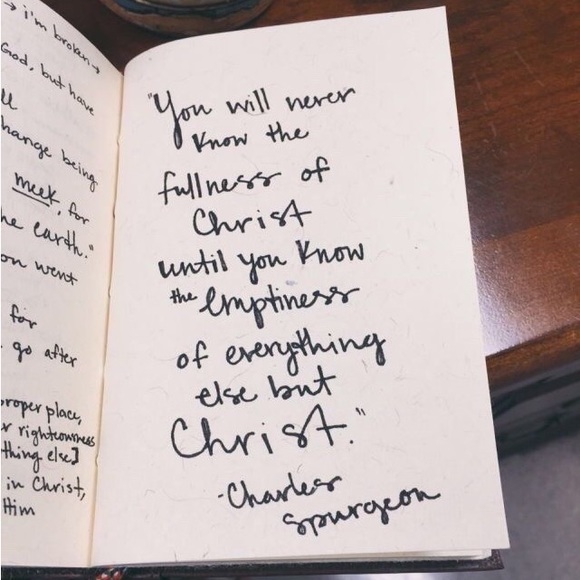 → i'm broken →
God, but have
change being
meek, for
he earth."
on went
for
go after
proper place,
r righteousness
thing else]
in Christ,
Him
"You will never
know the
fullness of
Christ
until you know
the emptiness
of everything
else but
Christ."
-Charles
Spurgeon